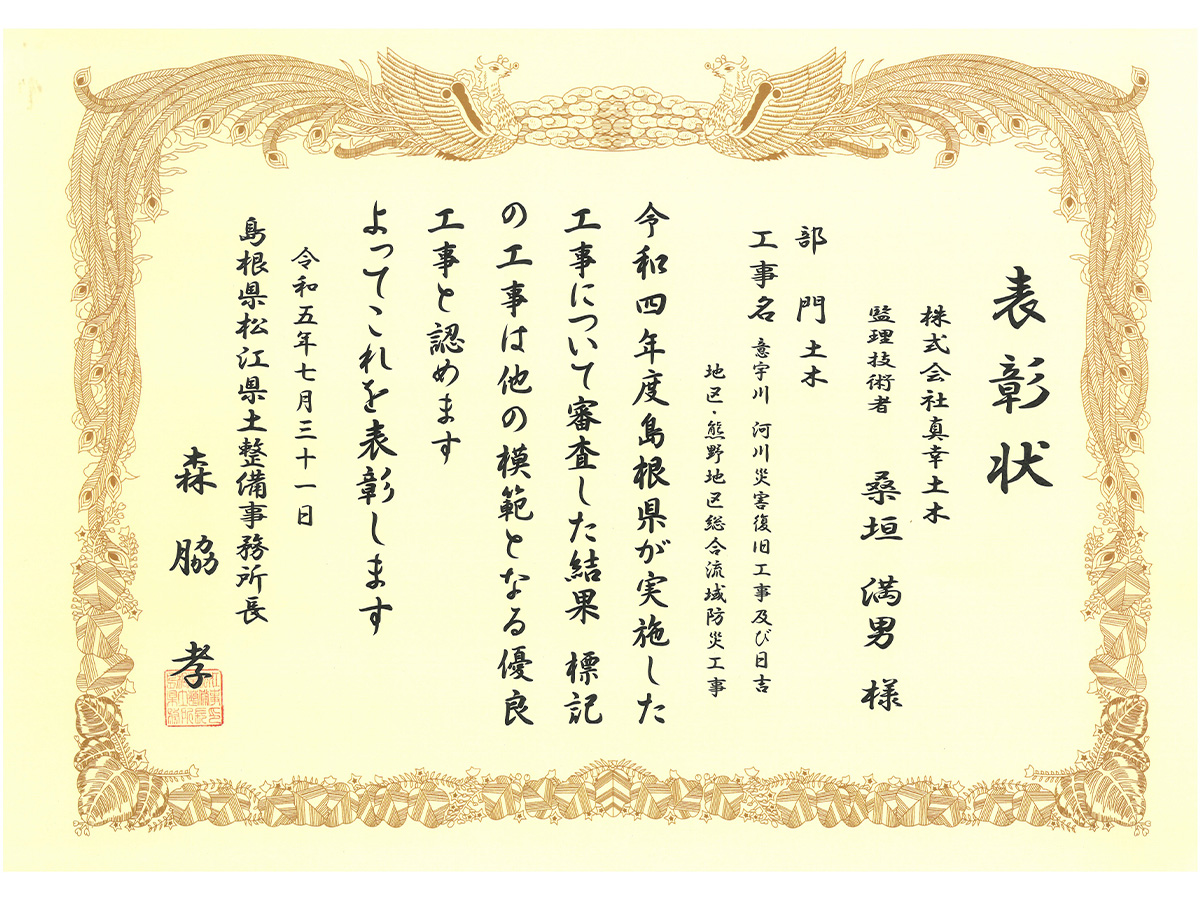 表彰状
株式会社真幸土木
監理技術者　桑垣　満男　様
部　門　土木
工事名　意宇川　河川災害復旧工事及び日吉
地区・熊野地区総合流域防災工事
令和四年度島根県が実施した
工事について審査した結果　標記
の工事は他の模範となる優良
工事と認めます
よってこれを表彰します
令和五年七月三十一日
島根県松江県土整備事務所長
森　脇　孝